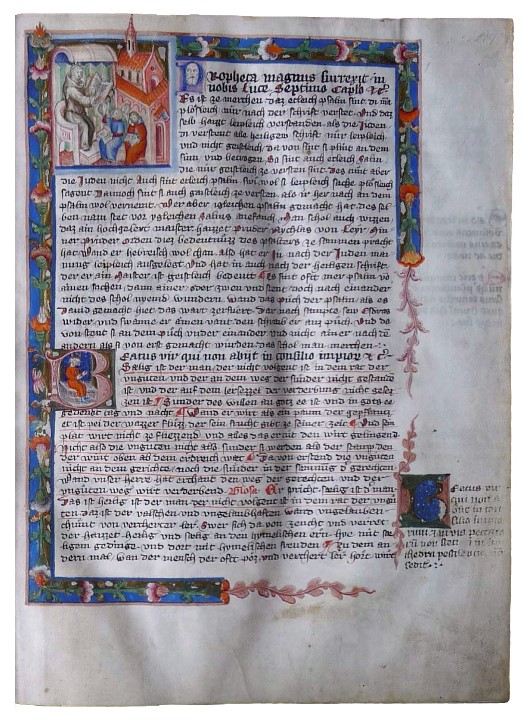 Propheta magnus surrexit in
nobis Luce Septimo Caplo
Es ist ze merchen daz etleich psalm sint di man
plosleich nür nach der schrift verstet Und daz
selb haizt leipleich verstanden als die Juden
di verstent alle heiligew schrift nür leipleich
und nicht geistleich da von sint s plint an dem
sinn und betrogen So sint auch etleich psalm
die nür geistleich ze versten sint Des nimt aber
die Juden nicht Auch sint etleich psalm
sagent Dannoch sint s auch geistleich ze versten als ir her nach an dem
psalm wol vernemt Wer aber igleichen psalm gemacht hat des sel
ben nam stet vor igleichen psalm Man schol auch wizzen
daz ain hochgelert maister haizzet pruder Nychlas von Leyr Min
ner pruder orden diez bedeutnuzz des psalters ze samme pracht
hat Wand er hebreisch wol chan als hat er in nach der Juden mai
nung leipleich ausgelegt Und hat in auch nach der heiligen schrift
der er ain maister ist geistleich bedeut Es sint oft mer psalm vo
ainen sachen dann ainer oder zwen und stent doch nach einander
nicht des schol nyemd wundern wand daz puch der psalm als es
David gemacht het das wart zerstört Dar nach sampte sew Esdras
wider und swann er ainen vant den schraib er an puch Und da
von stent s an dem puch under einander und nicht ainer nach de
andern als s von erst gemacht wurden das schol man merchen
Beatus vir qui non abijt in consilio impior
Sælig ist der man der nicht volgent ist in dem rat der
unguten und der an dem weg der sünder nicht gestande
ist und der auf dem lersezzel der verderbung nicht gesez
zen ist Sunder des willen an got ist und in gots ee
gedenket tag und nacht Wand er wirt als ein paum der gepflantzt
ist pei der wazzer fluzz der sein frucht gibt ze seiner zeit Und sein
plat wirt nicht ze fliezzend und alles das er tut den wirt gelingend
Nicht also die unguten nicht also sunder s werden als der staup den
der wint oben ab dem erdreich wet Da von erstend die unguten
nicht an dem gerichte noch die sunder in der samnung d gerechten
Wand unser herre hat erchant den weg der gerechten und der
unguten weg wirt verderbend Glosa Er spricht sælig ist d man
Das ist heilig ist der man der nicht volgent ist in dem rat der ungu
ten daz ist der valschen und ungelaubhaften Wand ungelauben
chumt von vercherter ler Swer sich da von zeucht und verret
der haizzet heilig und sælig an den hymelischen ern hye mit sæ
ligem gedinge und dort mit hymelischen freuden Zu dem an
dern mal wan der mensch der oft pöz und verchert ler hort wirt
Beatus vir
qui non a
biit in con
silio impio
rum et in via pecca
rum non stetit et in ca
thedra pestilencie non
sedit